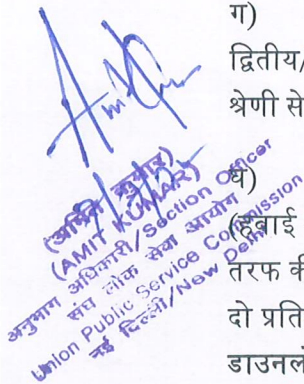 ग)
द्वितीय/
श्रेणी से
घ)
(हबाई
तरफ की
दो प्रति
डाउनलो
(अमित कुमार)
(AMIT KUMAR)
अनुभाग अधिकारी/Section Officer
संघ लोक सेवा आयोग
Union Public Service Commission
नई दिल्ली/New Delhi